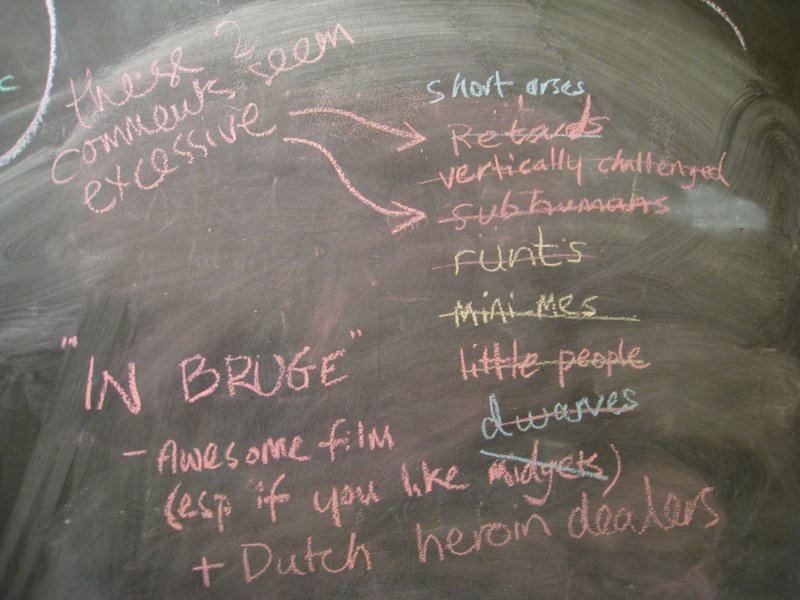 these 2
comments seem
excessive
short arses
Retards
vertically challenged
subhumans
runts
mini mes
little people
dwarves
"IN BRUGE"
- Awesome film
(esp if you like midgets)
+ Dutch heroin dealers
c